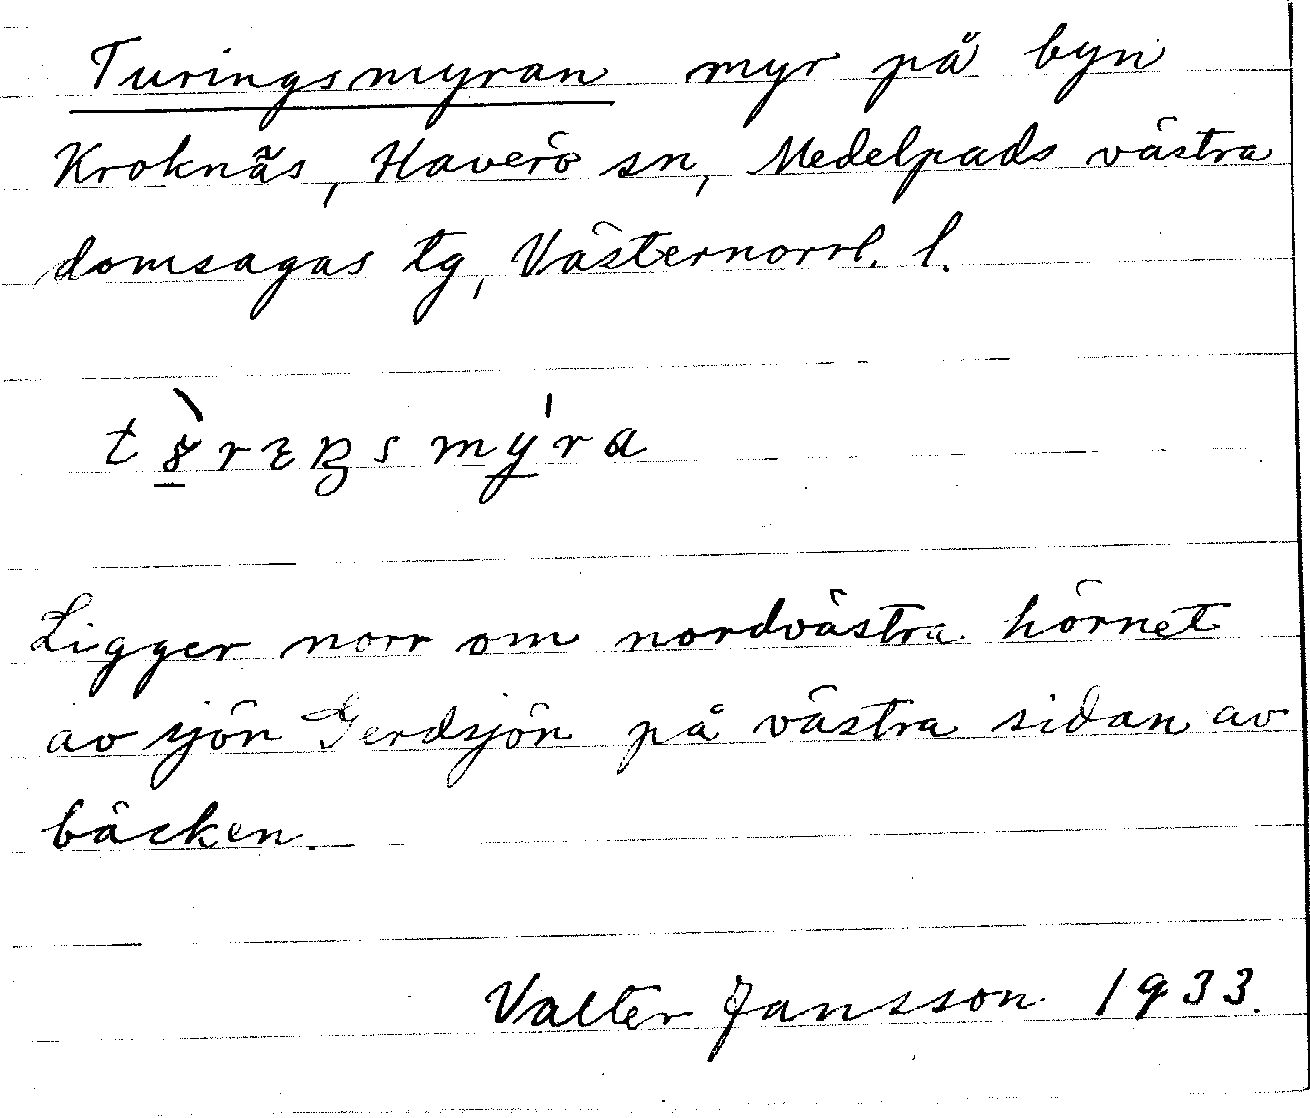 Turingsmyran myr på byn
Kroknäs, Haverö sn, Medelpads västra
domsagas tg, Västernorrl. l.
Ligger norr om nordvästra hörnet
av sjön Gerdsjön på västra sidan av
bäcken.
Valter Jansson 1933.